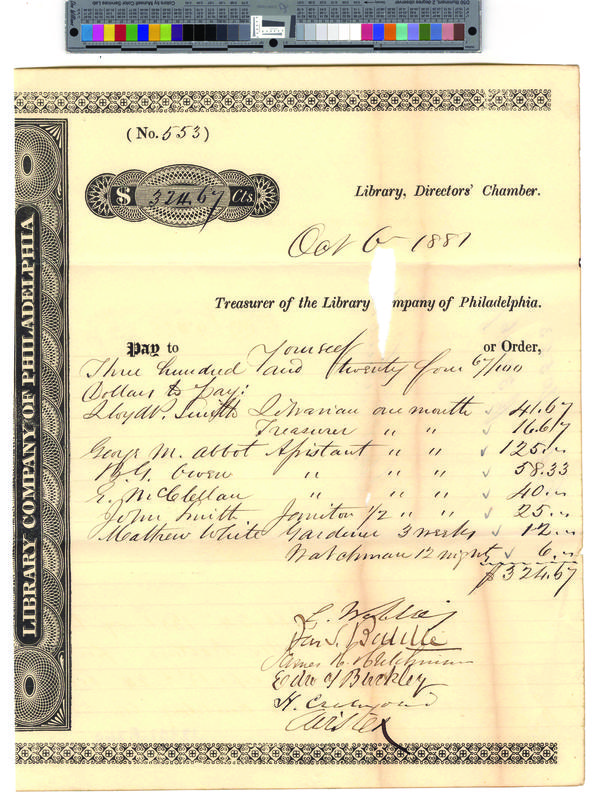 (No. 553)
$ 324.67 Cts.
Library, Directors' Chamber.
Oct 6 1881
Treasurer of the Library Company of Philadelphia.
Pay to Yourself or Order,
Three hundred and twenty four 67/100
Dollars to Pay:
Lloyd P. Smith Librarian one month 41.67
Treasurer " " 16.67
George M. Abbot Assistant " " 125
B.G. Owen " " " 58.33
E. McClellan " " " 40
John Smith Janitor 1/2 " " 25
Matthew White Gardener 3 weeks 12
Watchman 12 nights 6
$324.67
James H. Hutchinson
Edw Y Buckley
LIBRARY COMPANY OF PHILADELPHIA